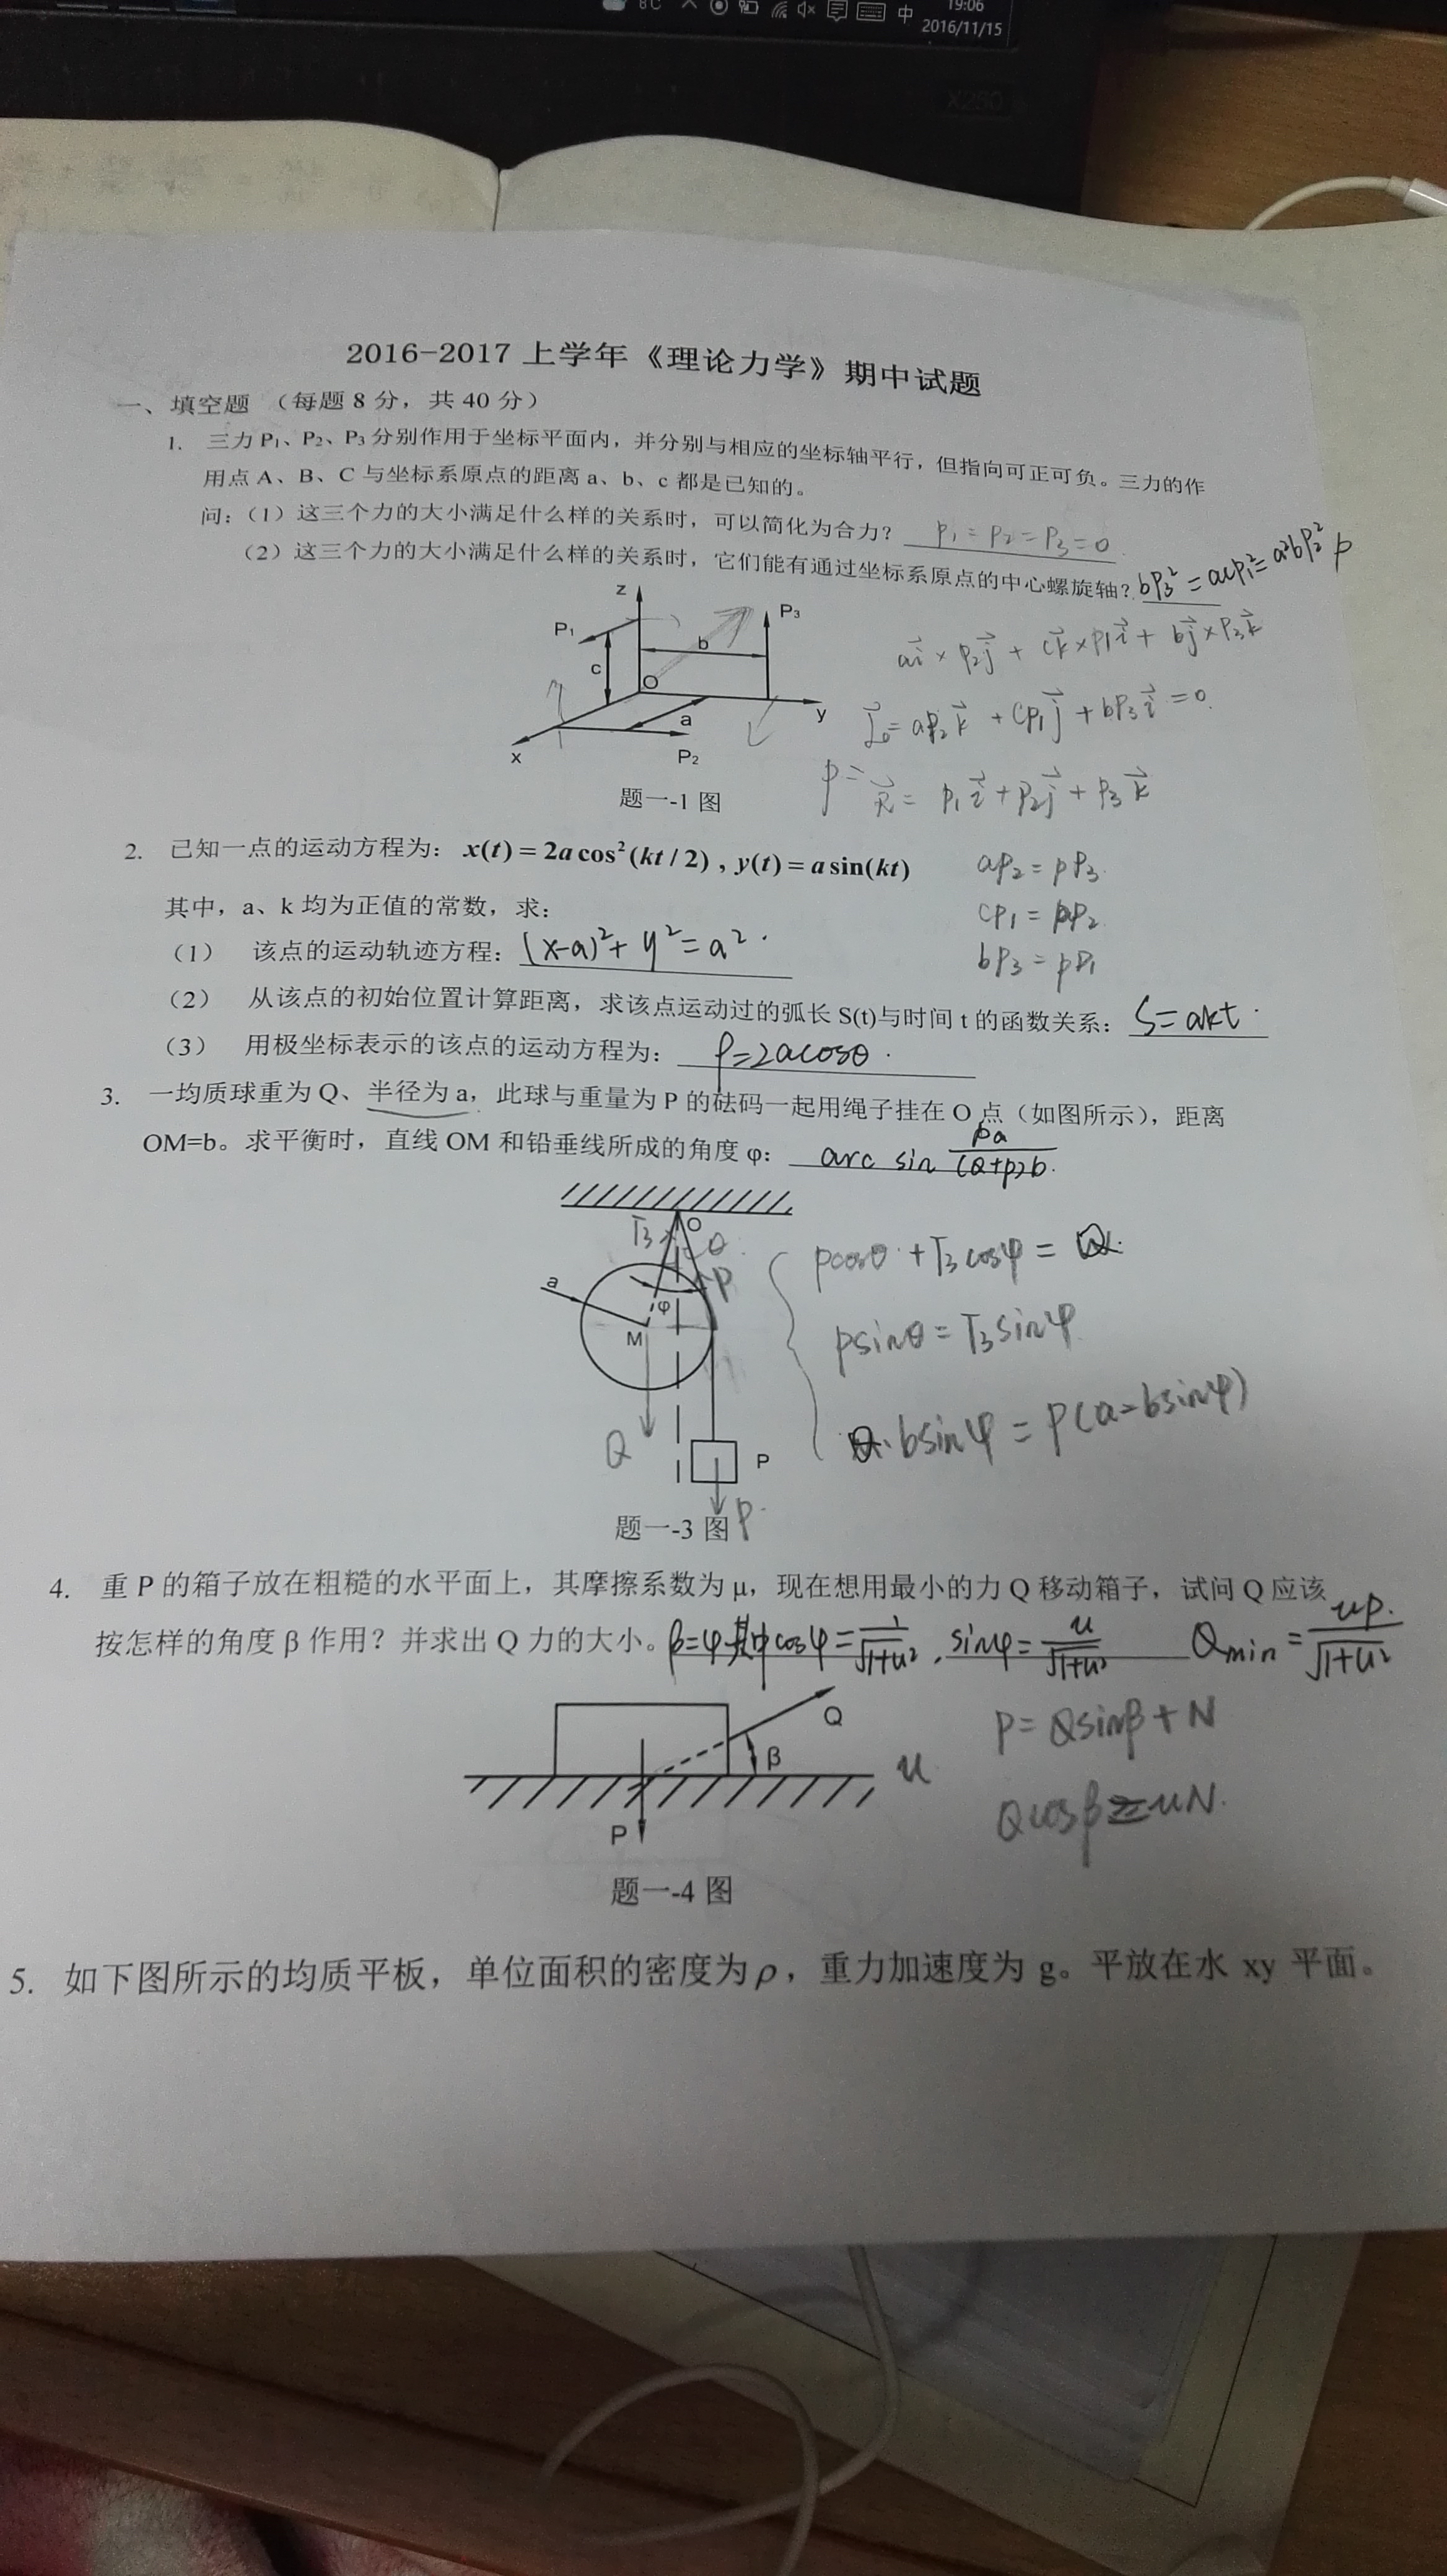 8°C
19:06
中
2016/11/15
X280
2016-2017 上学年《理论力学》期中试题
一、填空题 （每题 8 分，共 40 分）
1. 三力 P₁、P₂、P₃ 分别作用于坐标平面内，并分别与相应的坐标轴平行，但指向可正可负。三力的作
用点 A、B、C 与坐标系原点的距离 a、b、c 都是已知的。
问：（1）这三个力的大小满足什么样的关系时，可以简化为合力？ P₁=P₂=P₃=0
（2）这三个力的大小满足什么样的关系时，它们能有通过坐标系原点的中心螺旋轴？ bP₃²=acP₁²=a²bP₂² p
z
P₁
P₃
b
c
O
a
y
x
P₂
题一-1 图
ai×P₂j + ck×P₁i + bj×P₃k
L₀=aP₂k+cP₁j+bP₃i=0
p= R= P₁i+P₂j+P₃k
2. 已知一点的运动方程为：x(t) = 2a cos²(kt / 2) , y(t) = a sin(kt)
aP₂=pP₃
其中，a、k 均为正值的常数，求：
cP₁=pP₂
（1） 该点的运动轨迹方程：(x-a)²+y²=a².
bP₃=pP₁
（2） 从该点的初始位置计算距离，求该点运动过的弧长 S(t)与时间 t 的函数关系：S=akt.
（3） 用极坐标表示的该点的运动方程为：ρ=2acosθ.
3. 一均质球重为 Q、半径为 a，此球与重量为 P 的砝码一起用绳子挂在 O 点（如图所示），距离
OM=b。求平衡时，直线 OM 和铅垂线所成的角度 φ：arc sin Pa/(Q+P)b.
T₃
O
θ
a
P
φ
M
Q
P
P
题一-3 图
Pcosθ+T₃cosφ=Q.
Psinθ=T₃sinφ
Q·bsinφ=P(a-bsinφ)
4. 重 P 的箱子放在粗糙的水平面上，其摩擦系数为 μ，现在想用最小的力 Q 移动箱子，试问 Q 应该
按怎样的角度 β 作用？并求出 Q 力的大小。β=φ其中cosφ=1/√1+u², sinφ=u/√1+u² Qmin=up/√1+u²
Q
β
u
P
P=Qsinβ+N
Qcosβ≥uN.
题一-4 图
5. 如下图所示的均质平板，单位面积的密度为 ρ，重力加速度为 g。平放在水 xy 平面。